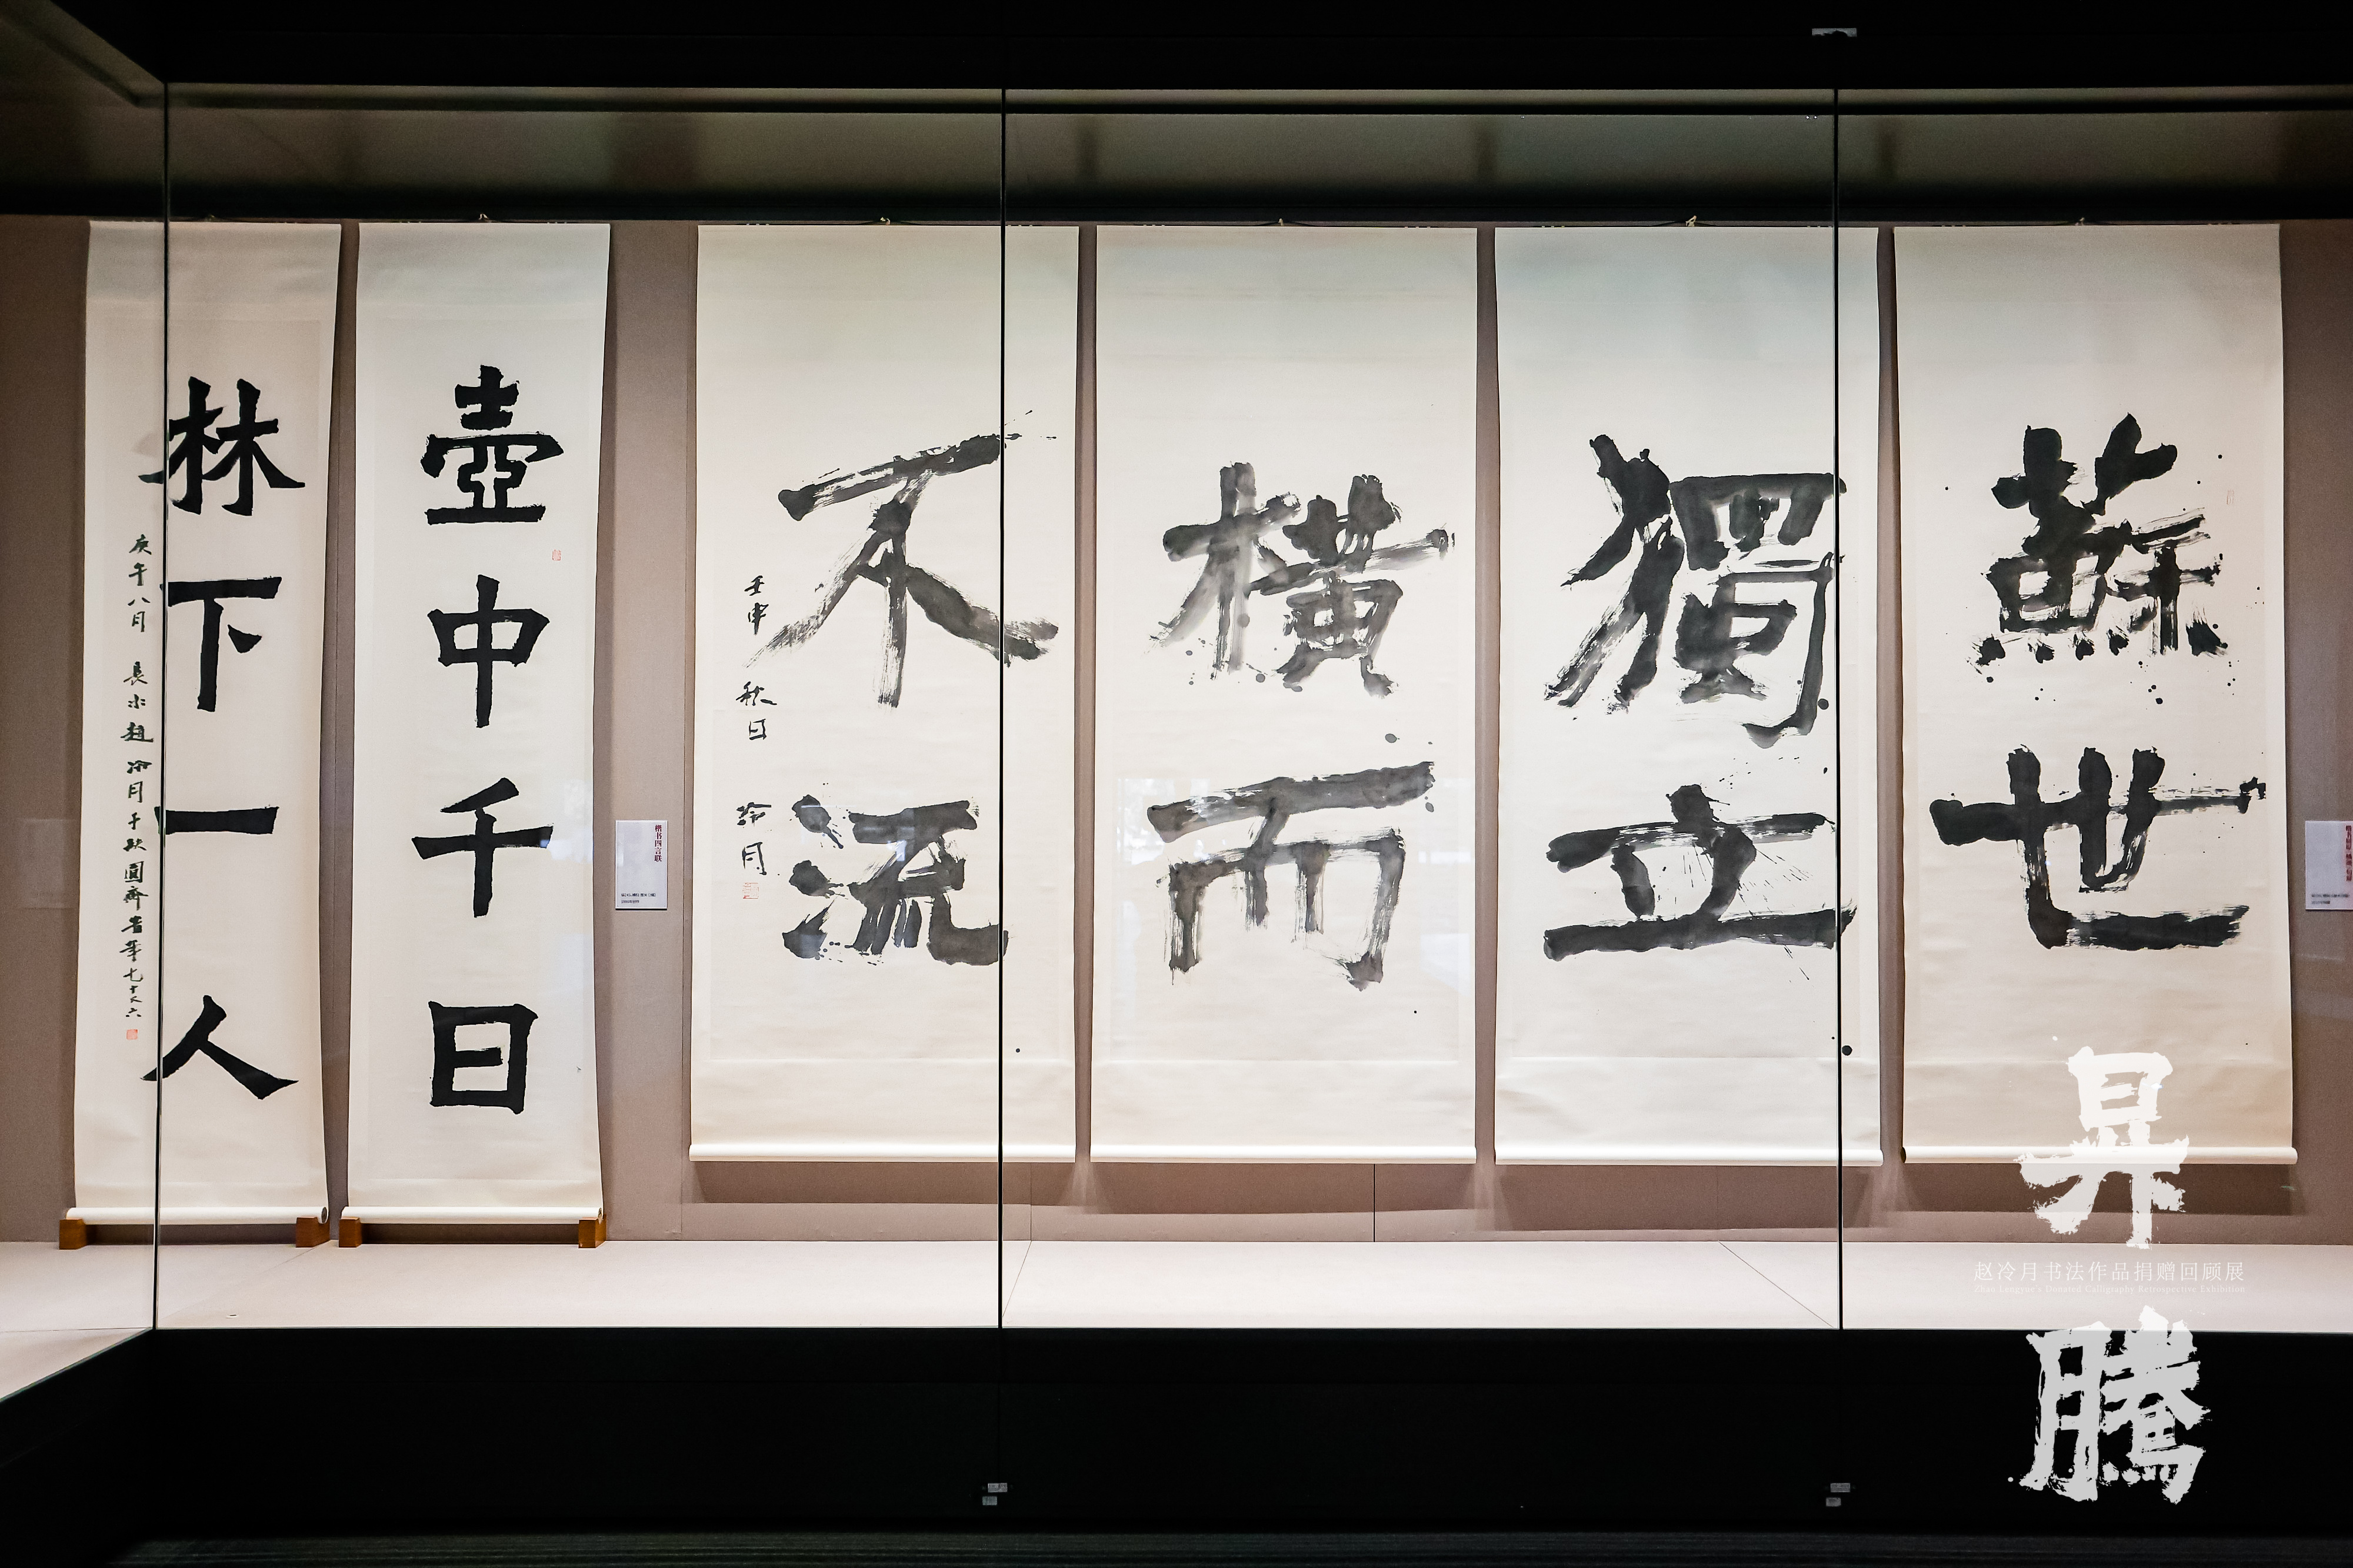 蘇世
獨立
橫而
不流
壬申秋日冷月
楷书四言联
壺中千日
林下一人
庚午八月 長水趙冷月于缺圓齋
昇腾
赵冷月书法作品捐赠回顾展
Zhao Lengyue's Donated Calligraphy Retrospective Exhibition